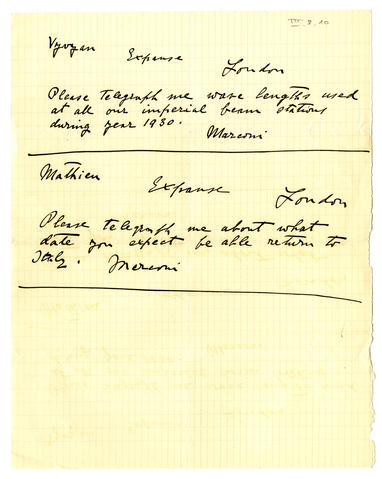 III. 8. 10
Vyvyan
Expanse
London
Please telegraph me wave lengths used
at all our imperial beam stations
during year 1930.
Marconi
Mathieu
Expanse
London
Please telegraph me about what
date you expect be able return to
Italy. Marconi